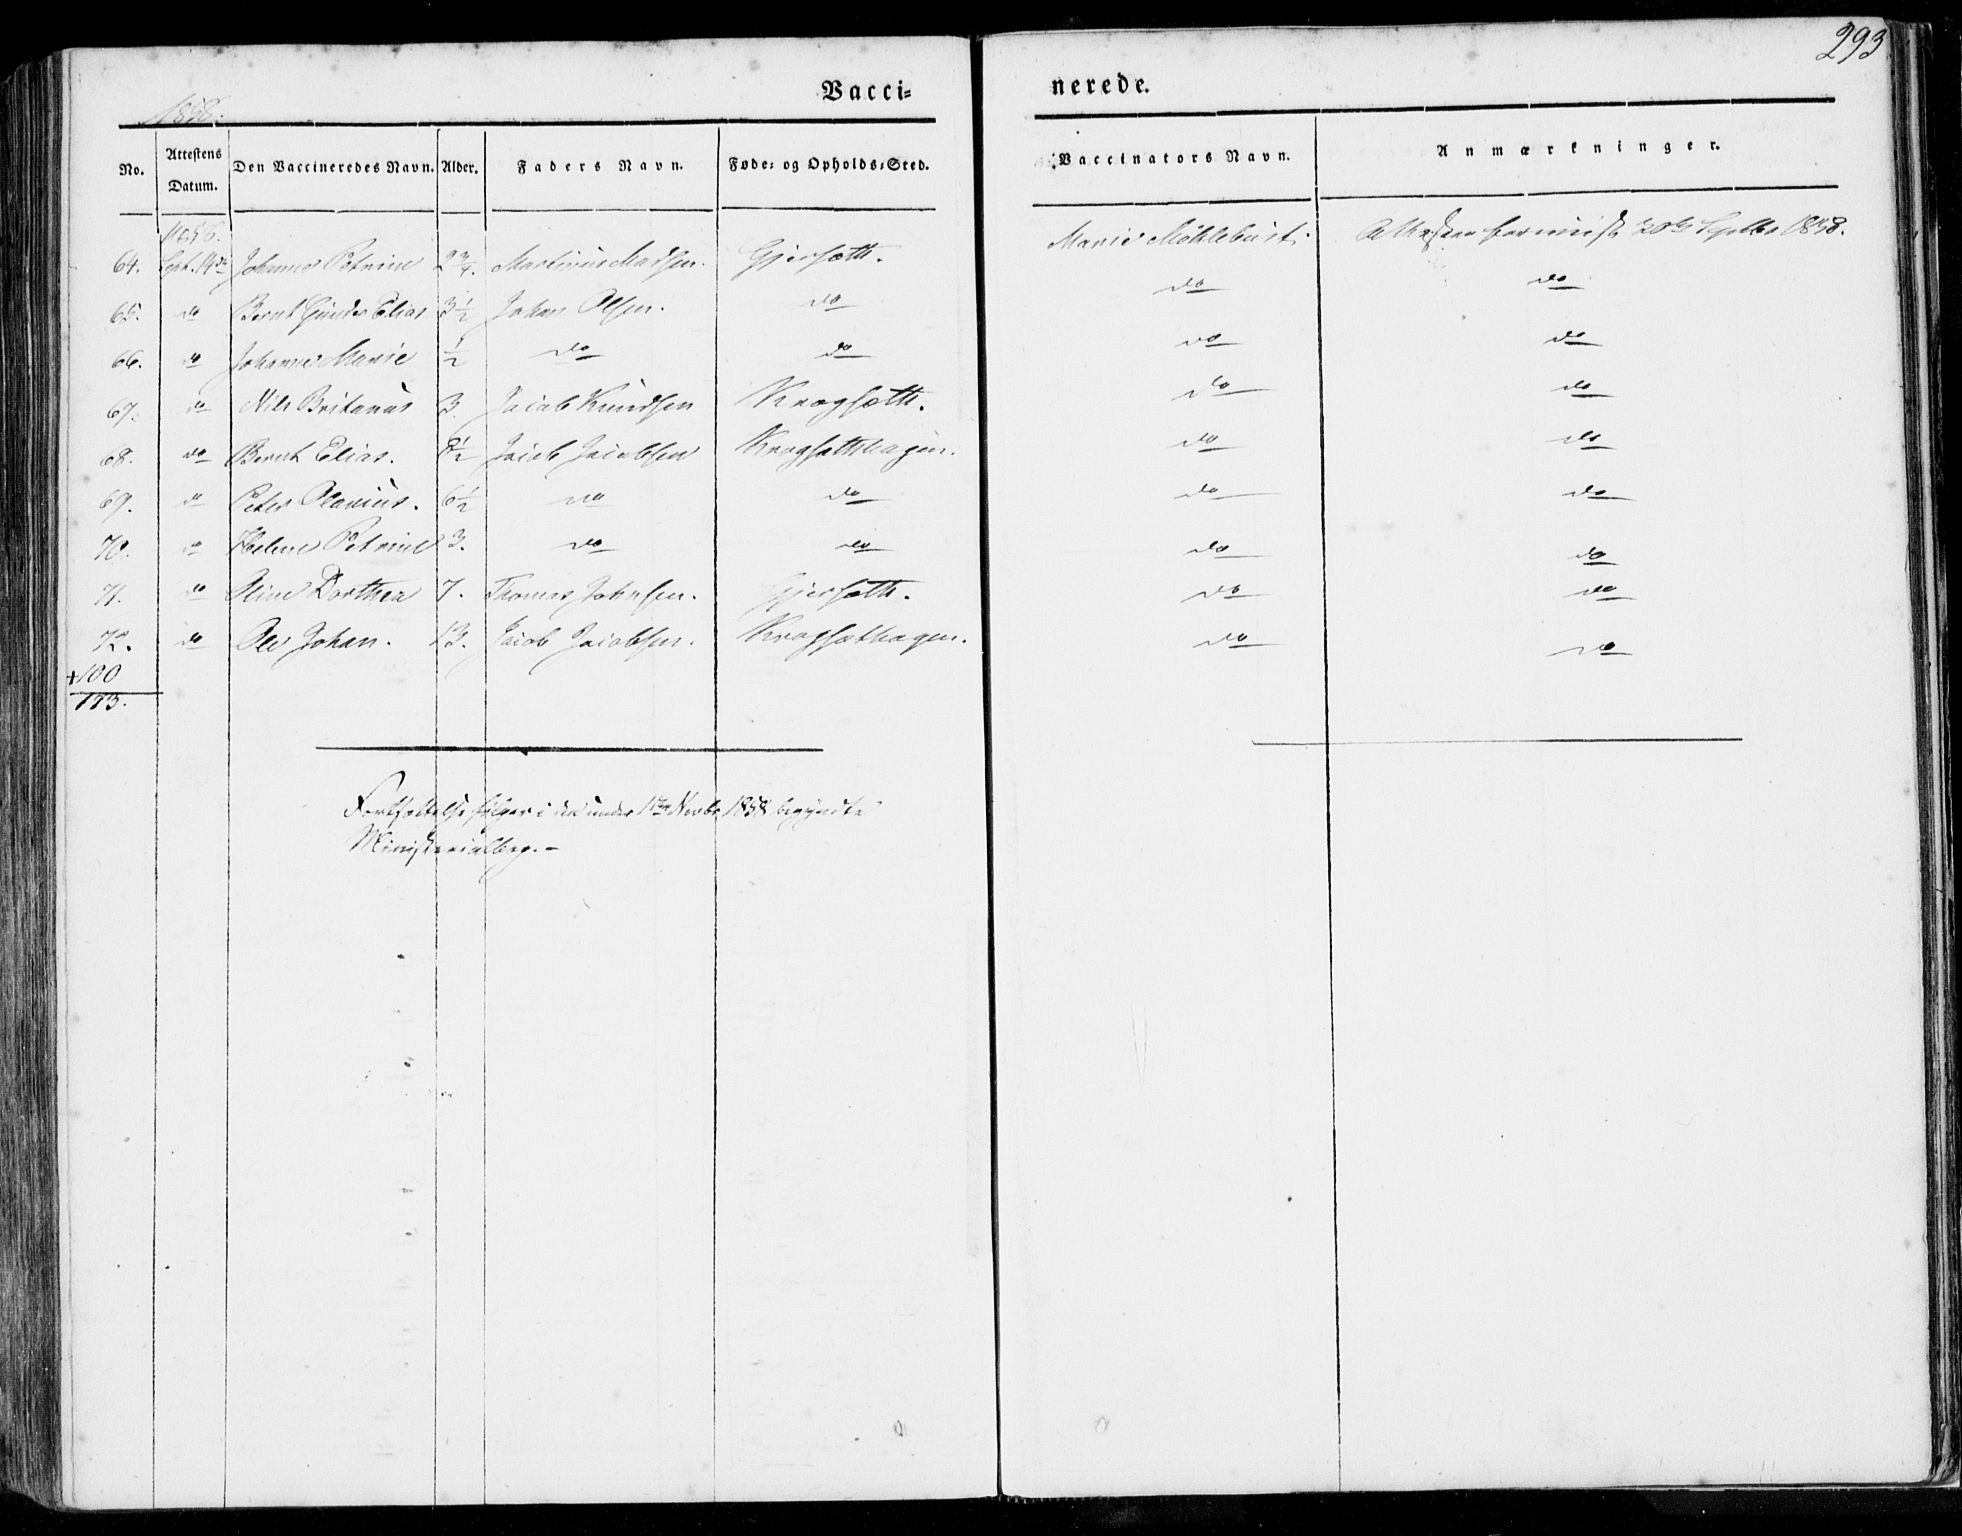 293
Vacci= nerede.
1858.
No. Attestens Datum. Den Vaccineredes Navn. Alder. Faders Navn. Føde= og Opholds=Sted. Vaccinators Navn. Anmærkninger.
64. Sept. 14de Johanne Petrine 2 3/4. Martinus Madsen. Gjersæth. Marie Møklebust. Attesten 20de Septbr 1858.
65. do Bernt Gunder Elias 3 1/2 Johan Olsen. do do do
66. do Johanne Marie 1/2 do do do do
67. do Nils Britanus 3. Jacob Knudsen Krogsæth. do do
68. do Bernt Elias. 8 1/2 Jacob Jacobsen Krogsæthhagen. do do
69. do Peter Olavius. 6 1/2 do do do do
70. do Helene Petrine 3. do do do do
71. do Oline Dorthea 7. Thomas Johnsen. Gjersæth. do do
72. do Ole Johan. 13. Jacob Jacobsen. Krogsæthagen. do do
+100
173.
Fortsættelse følger i den under 1ste Novbr 1858 begyndte
Ministerialbog. -